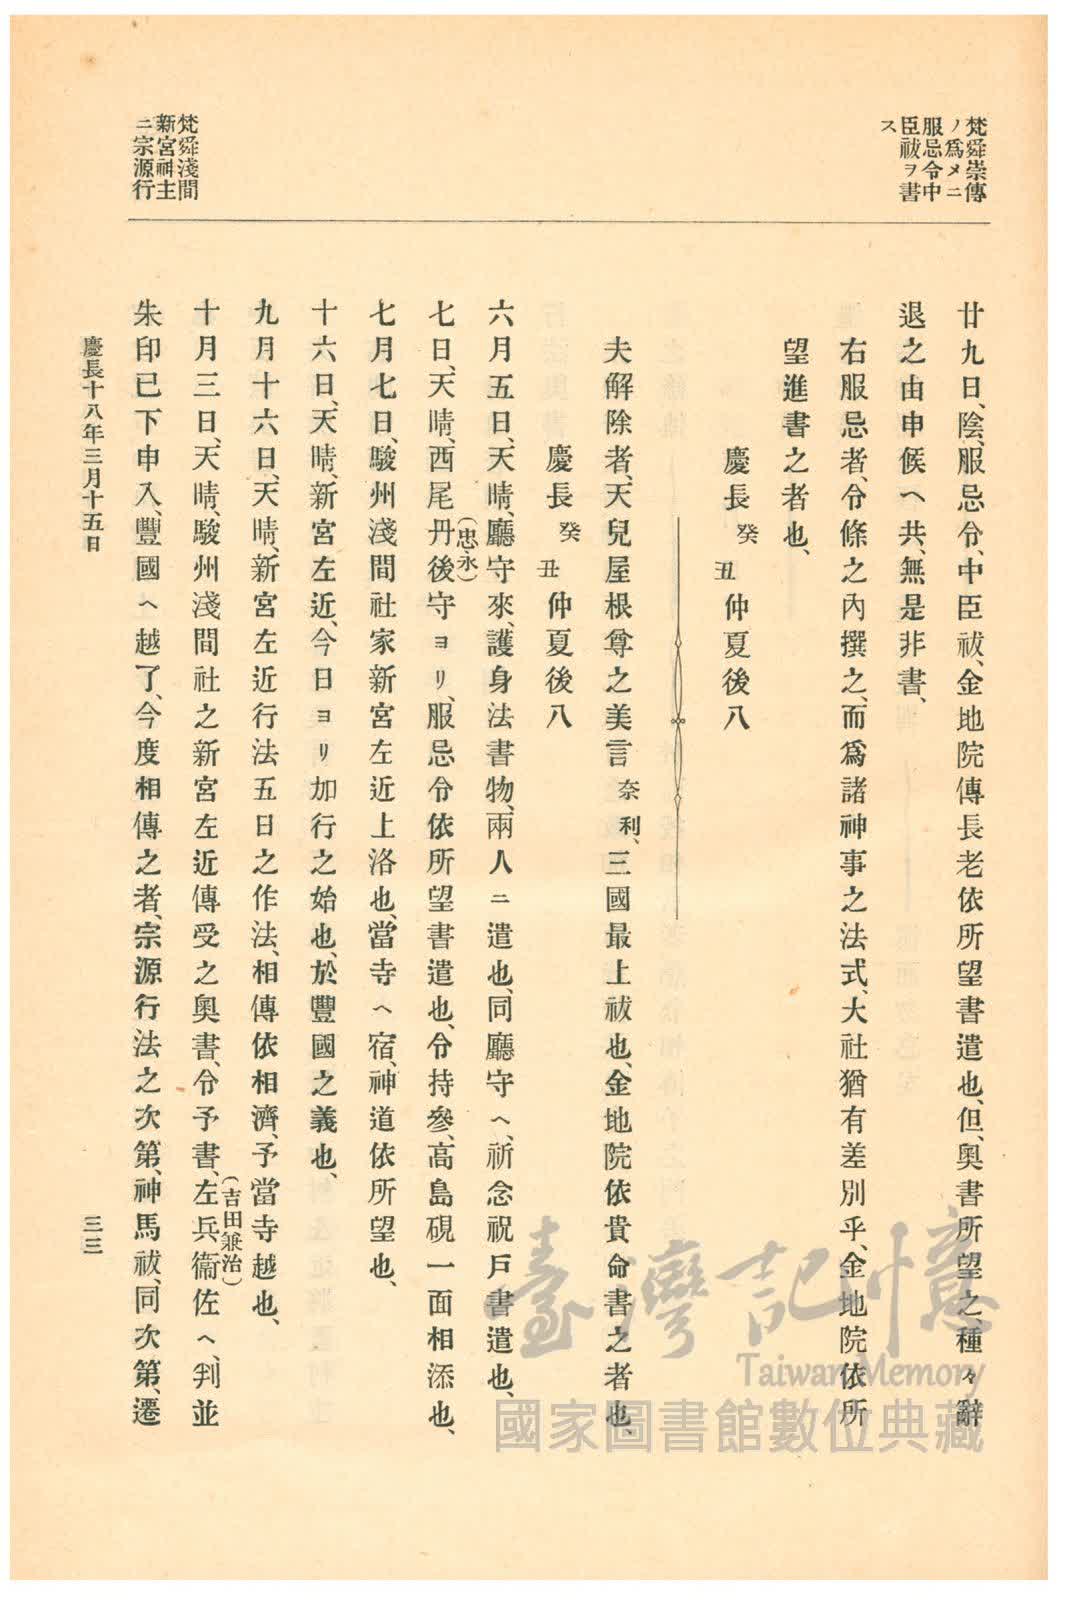 梵舜崇傳
ノ爲メニ
服忌令中
臣祓ヲ書
ス
梵舜淺間
新宮神主
ニ宗源行
廿九日、陰、服忌令、中臣祓、金地院傳長老依所望書遣也、但、奧書所望之、種々辭
退之由申候ヘ共、無是非書、
右服忌者、令條之內撰之、而爲諸神事之法式、大社猶有差別乎、金地院依所
望進書之者也、
慶長癸丑仲夏後八
夫解除者、天兒屋根尊之美言奈利、三國最上祓也、金地院依貴命書之者也、
慶長癸丑仲夏後八
六月五日、天晴、廳守來、護身法書物、兩人ニ遣也、同廳守ヘ、祈念祝戶書遣也、
七日、天晴、西尾丹後守(忠永)ヨリ、服忌令依所望書遣也、令持參、高島硯一面相添也、
七月七日、駿州淺間社家新宮左近上洛也、當寺ヘ宿、神道依所望也、
十六日、天晴、新宮左近、今日ヨリ加行之始也、於豐國之義也、
九月十六日、天晴、新宮左近行法五日之作法、相傳依相濟、予當寺越也、
十月三日、天晴、駿州淺間社之新宮左近傳受之奧書、令予書、左兵衞佐(吉田兼治)ヘ、判並
朱印已下申入、豐國ヘ越了、今度相傳之者、宗源行法之次第、神馬祓、同次第、遷
慶長十八年三月十五日
三三
臺灣記憶
Taiwan Memory
國家圖書館數位典藏